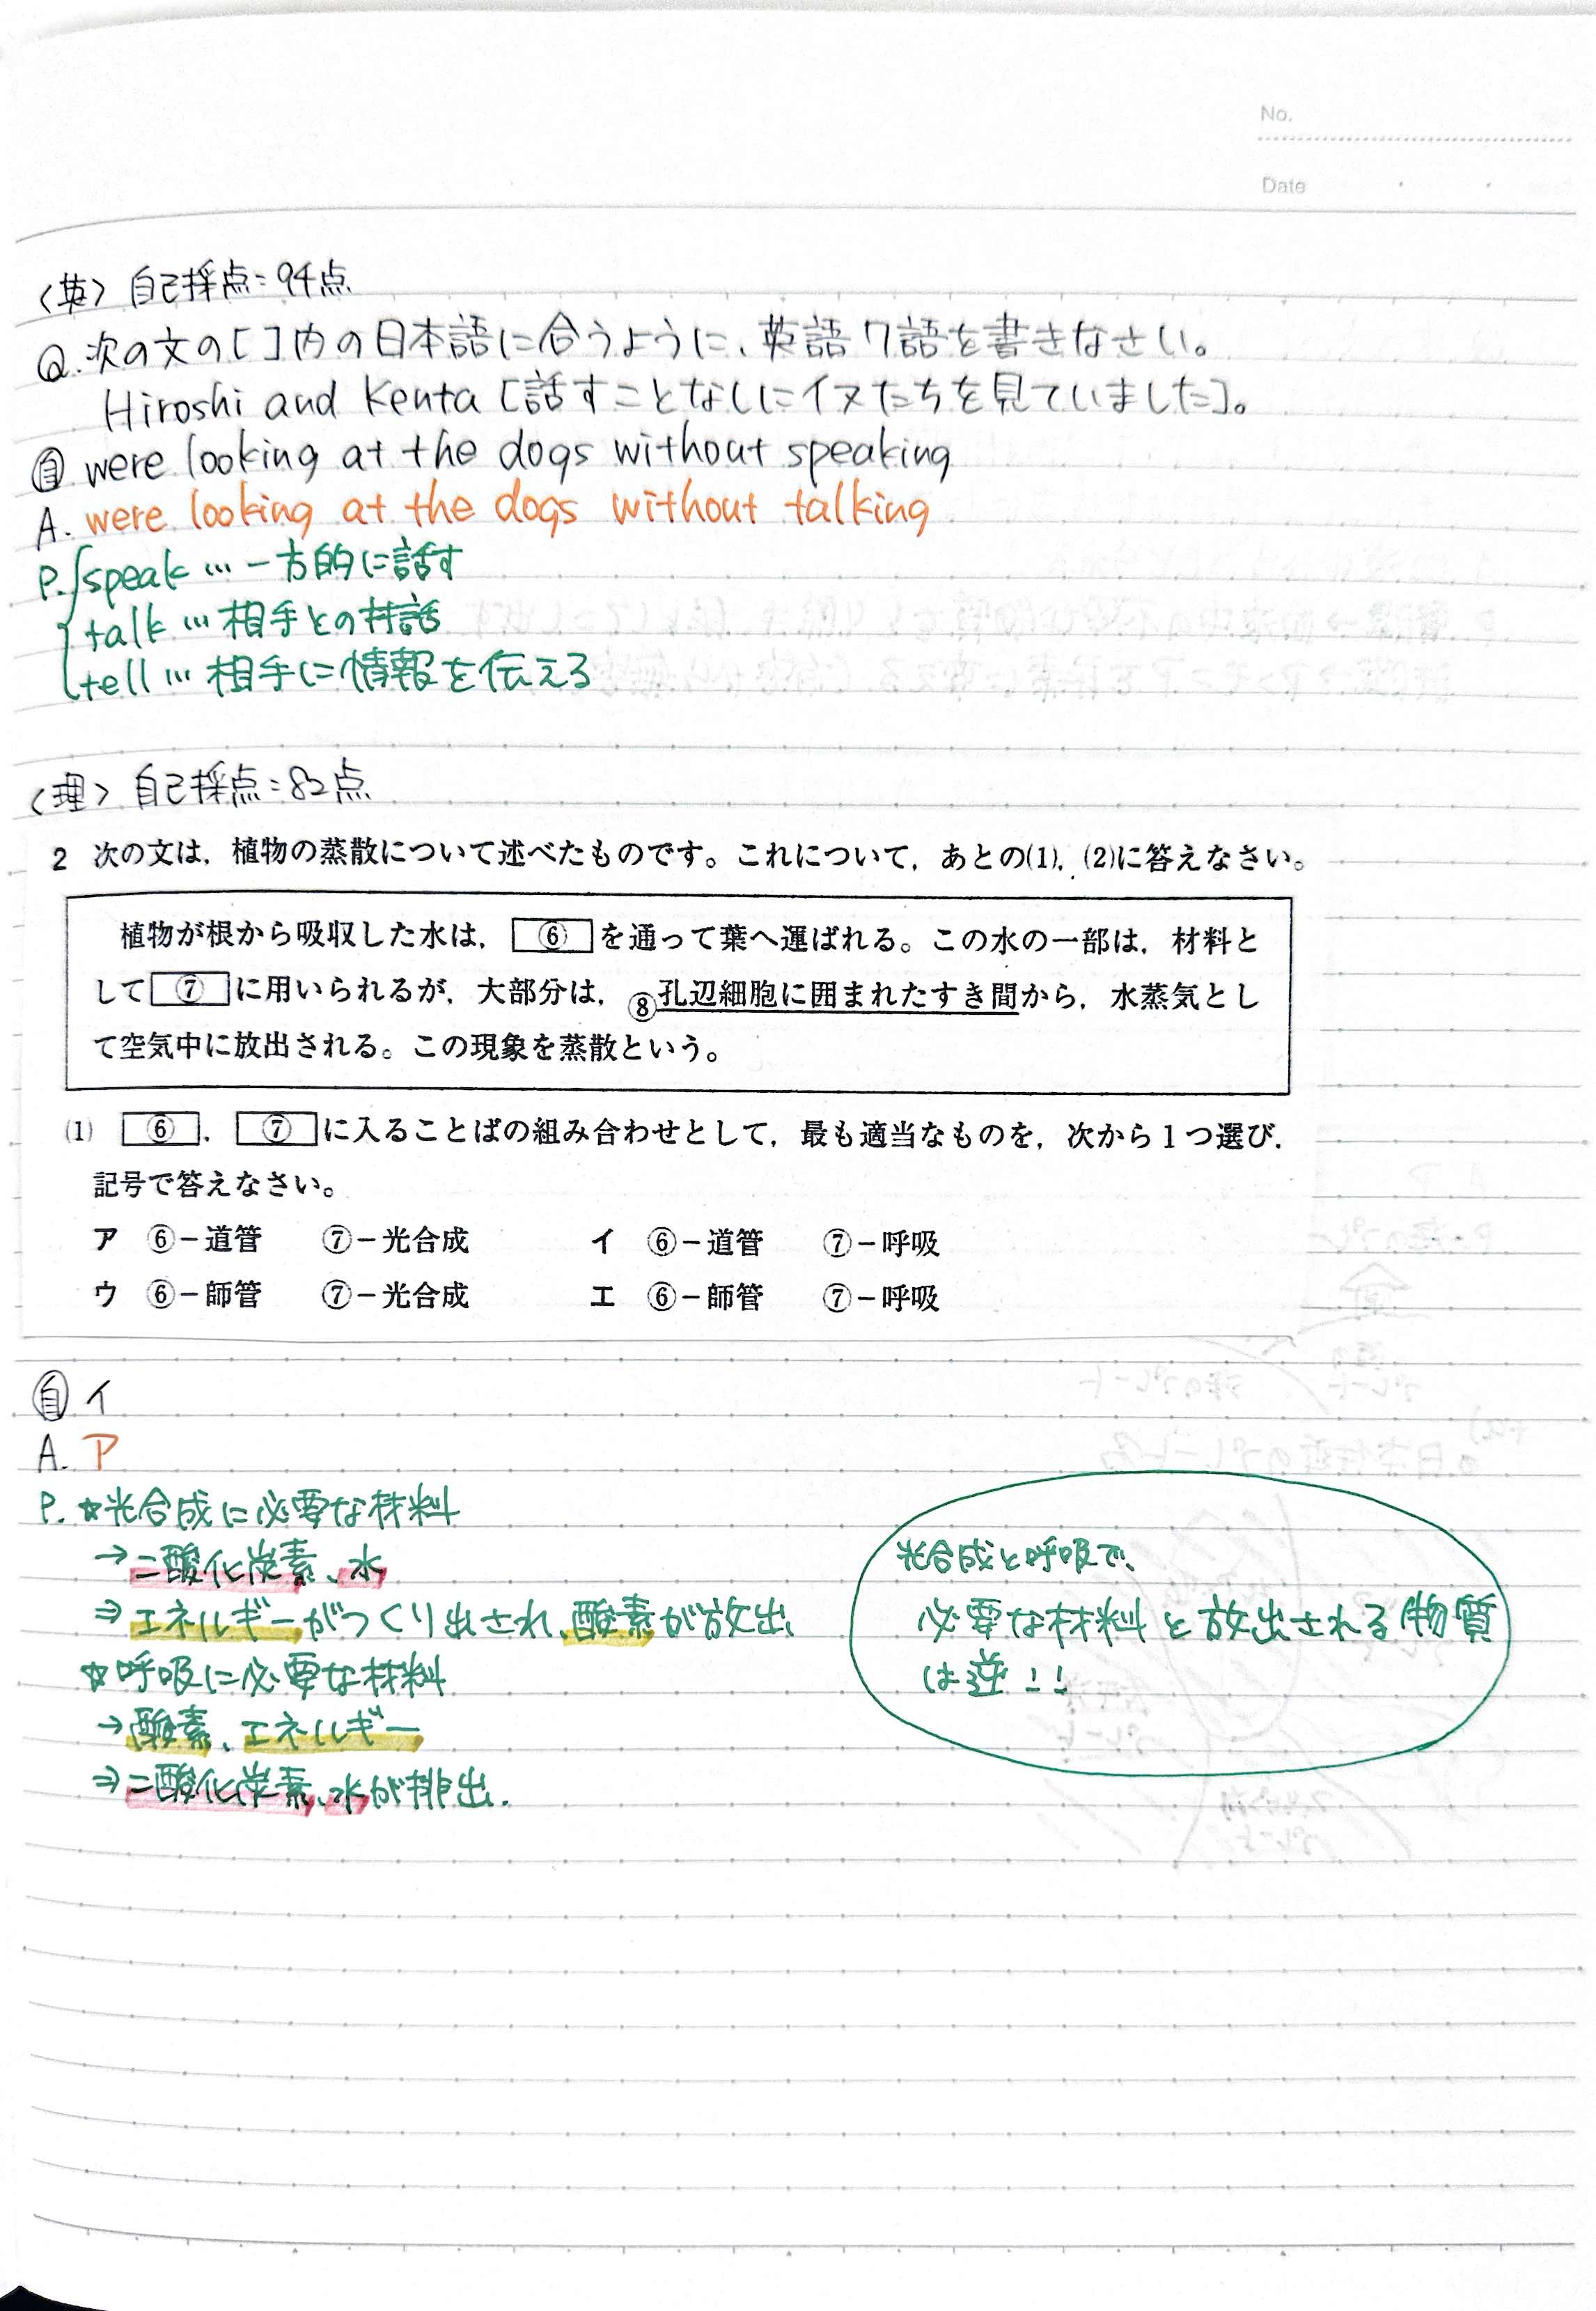 No.
Date
〈英〉自己採点：94点
Q. 次の文の[ ]内の日本語に合うように、英語7語を書きなさい。
Hiroshi and Kenta [話すことなしにイヌたちを見ていました]。
㉂ were looking at the dogs without speaking
A. were looking at the dogs without talking
P. speak … 一方的に話す
talk … 相手との対話
tell … 相手に情報を伝える
〈理〉自己採点：82点
2 次の文は，植物の蒸散について述べたものです。これについて，あとの(1)，(2)に答えなさい。
植物が根から吸収した水は，⑥を通って葉へ運ばれる。この水の一部は，材料と
して⑦に用いられるが，大部分は，⑧孔辺細胞に囲まれたすき間から，水蒸気とし
て空気中に放出される。この現象を蒸散という。
(1) ⑥，⑦に入ることばの組み合わせとして，最も適当なものを，次から1つ選び，
記号で答えなさい。
ア ⑥－道管 ⑦－光合成 イ ⑥－道管 ⑦－呼吸
ウ ⑥－師管 ⑦－光合成 エ ⑥－師管 ⑦－呼吸
㉂ イ
A. ア
P. ☆光合成に必要な材料
→二酸化炭素、水
⇒エネルギーがつくり出され、酸素が放出、
☆呼吸に必要な材料
→酸素、エネルギー
⇒二酸化炭素、水が排出.
光合成と呼吸で、
必要な材料と放出される物質
は逆！！